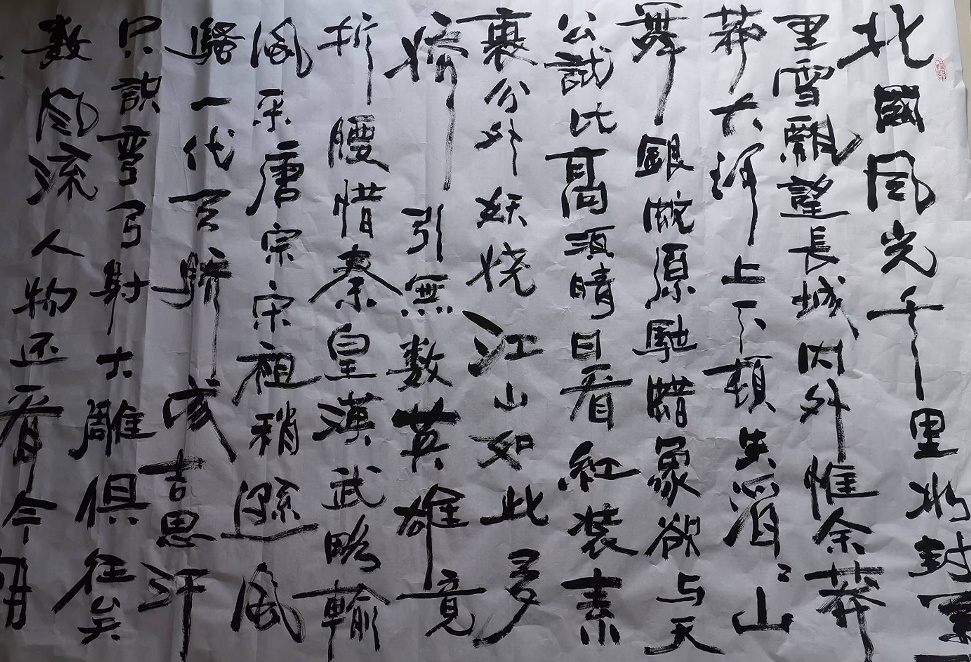 北國风光千里冰封萬
里雪飄望長城内外惟余莽
莽大河上下頓失滔〻山
舞銀蛇原馳蜡象欲与天
公試比高須晴日看紅装素
裹分外妖娆江山如此多
嬌引無數英雄竞
折腰惜秦皇漢武略輸
風采唐宗宋祖稍遜風
騷一代天驕成吉思汗
只識弯弓射大雕俱往矣
数风流人物还看今朝